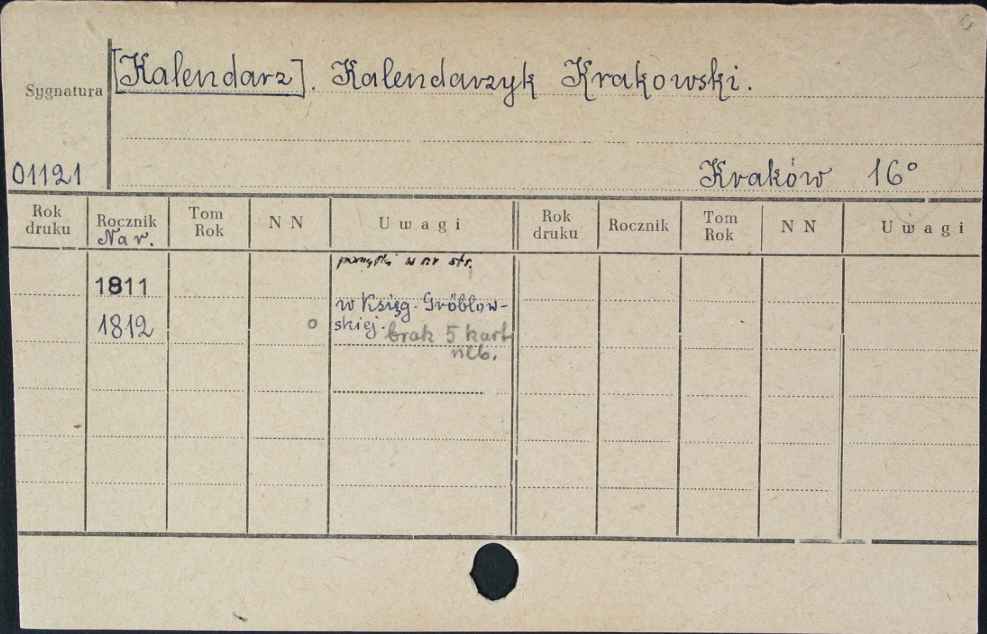 [Kalendarz]. Kalendarzyk Krakowski.
Sygnatura
01121
Kraków 16°
Rok druku Rocznik Tom Rok N N Uwagi Rok druku Rocznik Tom Rok N N Uwagi
Nar.
str.
1811
w Księg. Gröblow-
1812 o skiej. brak 5 kart
nlb.